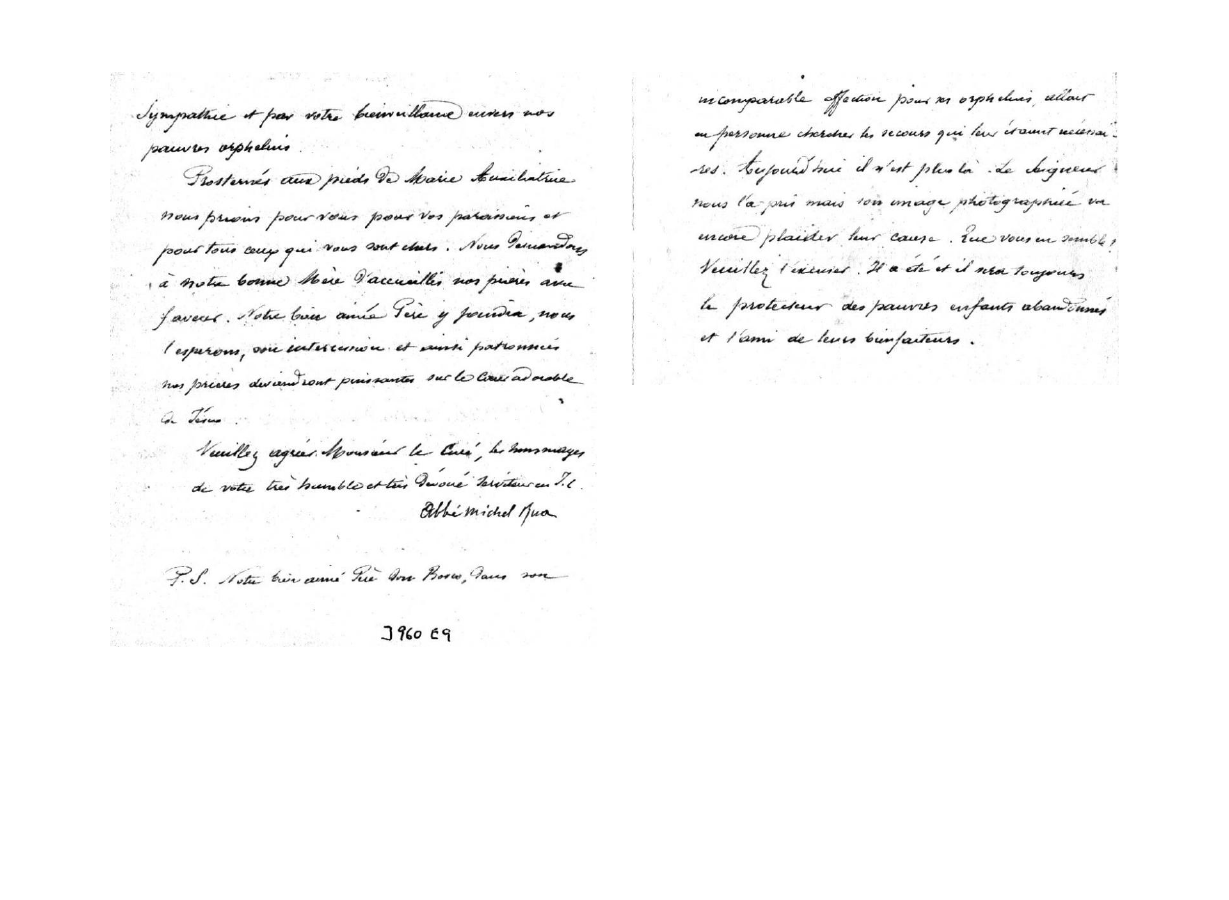 Sympathie et par votre bienveillance envers nos
pauvres orphelins.
Prosternés aux pieds de Marie Auxiliatrice
nous prions pour vous pour vos paroissiens et
pour tous ceux qui vous sont chers. Nous demandons
à notre bonne Mère d'accueillir nos prières avec
faveur. Notre bien aimé Père y joindra, nous
l'esperons, son intercession et ainsi patronnées
nos prières deviendront puissantes sur le Coeur adorable
de Jésus.
Veuillez agréer Monsieur le Curé, les hommages
de votre très humble et très dévoué Serviteur en J.C.
Abbé Michel Rua
P.S. Notre bien aimé Père Don Bosco, dans son
J960 E9
incomparable affection pour ses orphelins, allait
en personne chercher les secours qui leur étaient nécessai-
res. Aujourd'hui il n'est plus là. Le Seigneur
nous l'a pris mais son image photographiée va
encore plaider leur cause. Que vous en semble,
Veuillez l'excuser. Il a été et il sera toujours
le protecteur des pauvres enfants abandonnés
et l'ami de leurs bienfaiteurs.